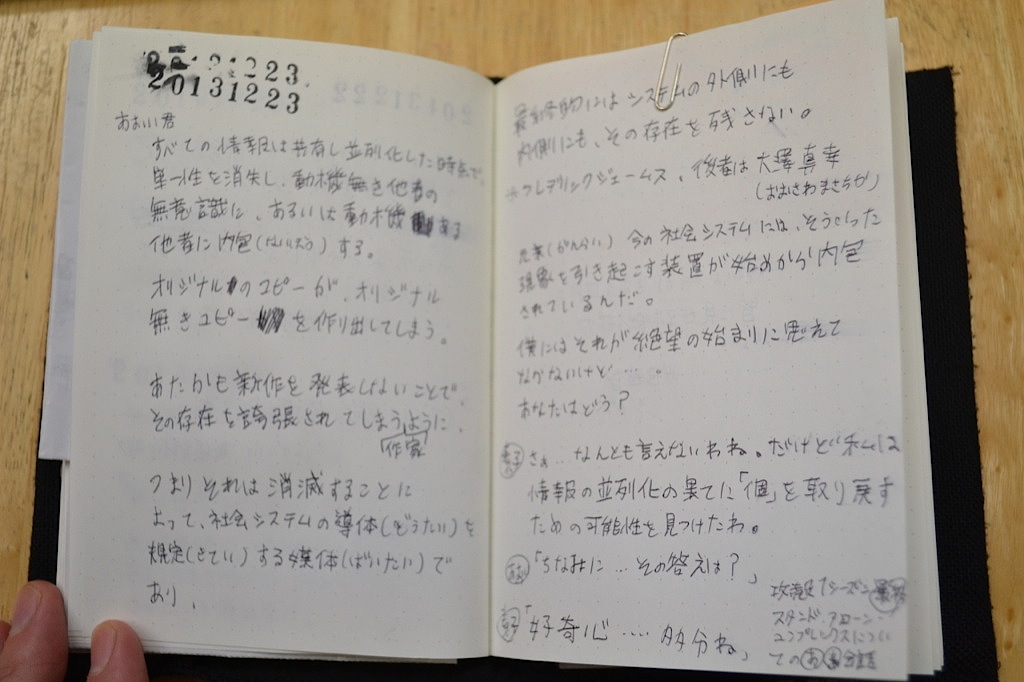 20131223
20131223
あおい君
すべての情報は共有し並列化した時点で、
単一性を消失し、動機無き他者の
無意識に、あるいは動機ある
他者に内包(ないほう)する。
オリジナルのコピーが、オリジナル
無きコピーを作り出してしまう。
あたかも新作を発表しないことで、
その存在を誇張されてしまうように、
作家
つまりそれは消滅することに
よって、社会システムの導体(どうたい)を
規定(きてい)する媒体(ばいたい)で
あり、
最終的にはシステムの外側にも
内側にも、その存在を残さない。
※フレデリックジェームス、後者は大澤真幸
(おおさわまさちが)
元来(がんらい) 今の社会システムには、そういった
現象を引き起こす装置が始めから内包
されているんだ。
僕にはそれが絶望の始まりに思えて
なかないけど…。
あなたはどう?
素子 さぁ…なんとも言えないわね。だけど私は
情報の並列化の果てに「個」を取り戻す
ための可能性を見つけたわ。
「ちなみに…その答えは?」
素子「好奇心…. 多分ね」
攻殻 1シーズン
スタンド アローン・
コンプレックスについ
ての